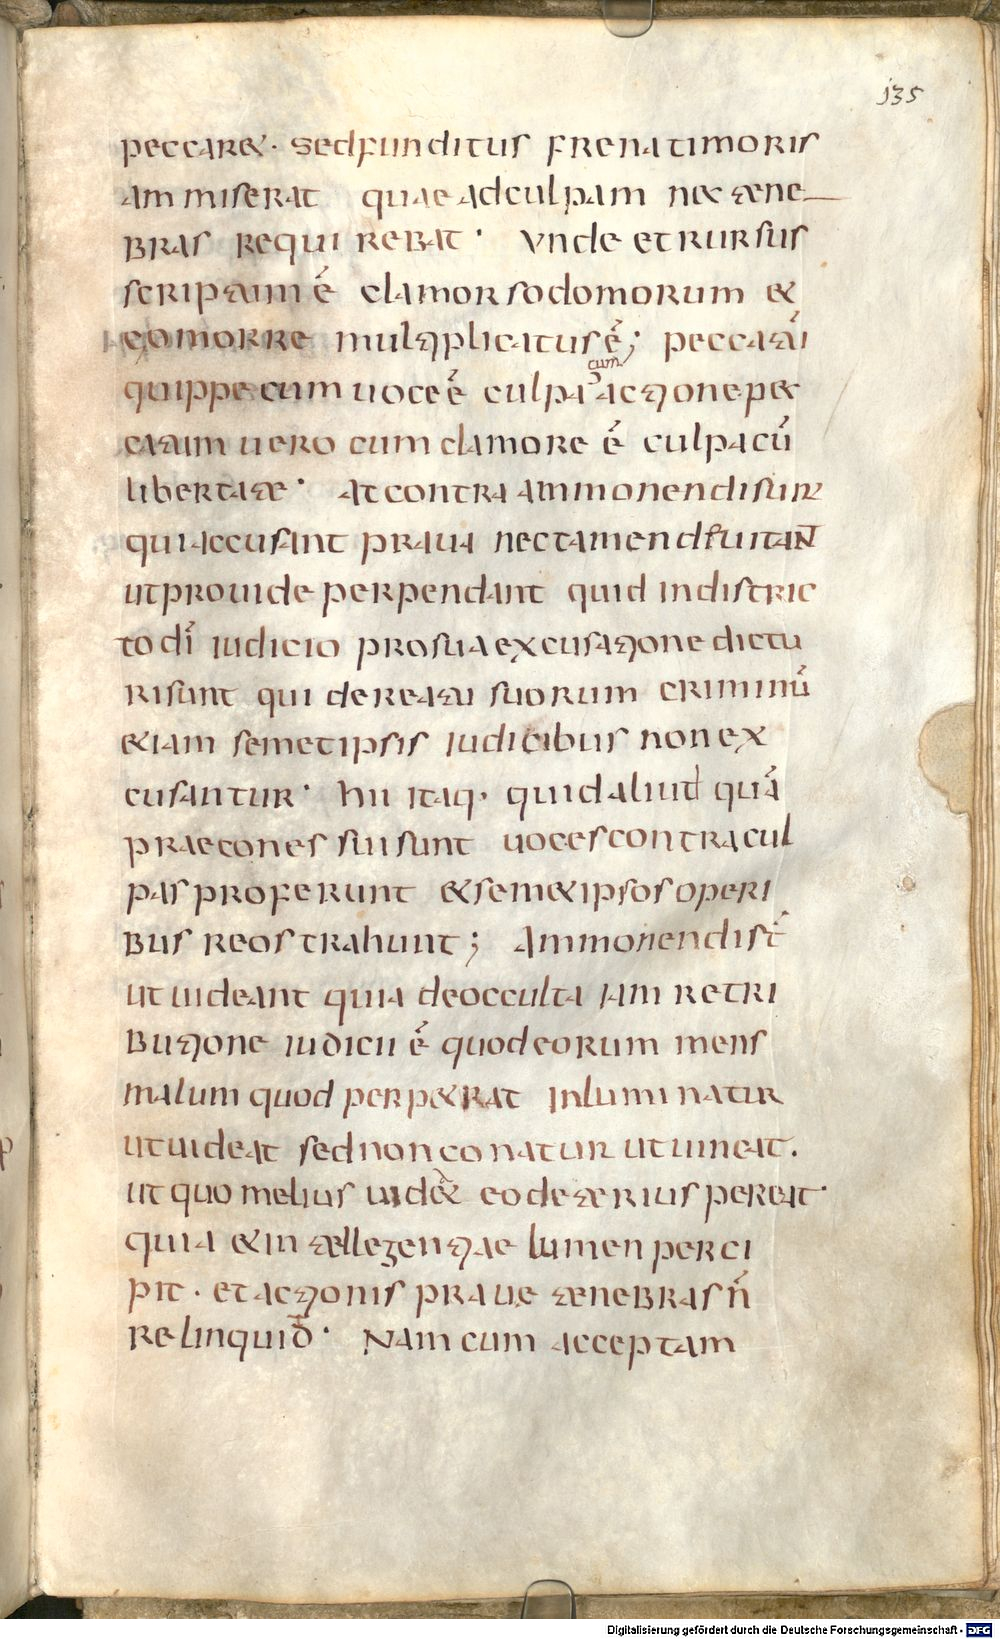 135
peccaret. sed funditus frena timoris
ammiserat quae ad culpam nec tene
bras requirebat. Unde et rursus
scriptum ē clamor sodomorum &
gomorre multiplicatus ē; peccatū
quippe cum uoce ē culpa cum in actione pec
catum uero cum clamore ē culpa cū
libertate. At contra ammonendi sunt
qui accusant praua nec tamen deuitant
ut prouide perpendant quid in distric
to dī iudicio pro sua excusatione dictu
ri sunt qui de reatu suorum criminū
&iam semetipsis iudicibus non ex
cusantur. hii itaq· quid aliud quā
praecones sui sunt uoces contra cul
pas proferunt & sem&ipsos operi
bus reos trahunt; Ammonendi sт̄
ut uideant quia de occulta iam retri
butione iudicii ē quod eorum mens
malum quod perp&rat inluminatur
ut uideat sed non conatur ut uincat.
ut quo melius uid& eo deterius pereat·
quia & intellegentiae lumen perci
pit. et actionis praue tenebras n̄
relinquid· Nam cum acceptam
Digitalisierung gefördert durch die Deutsche Forschungsgemeinschaft - DFG